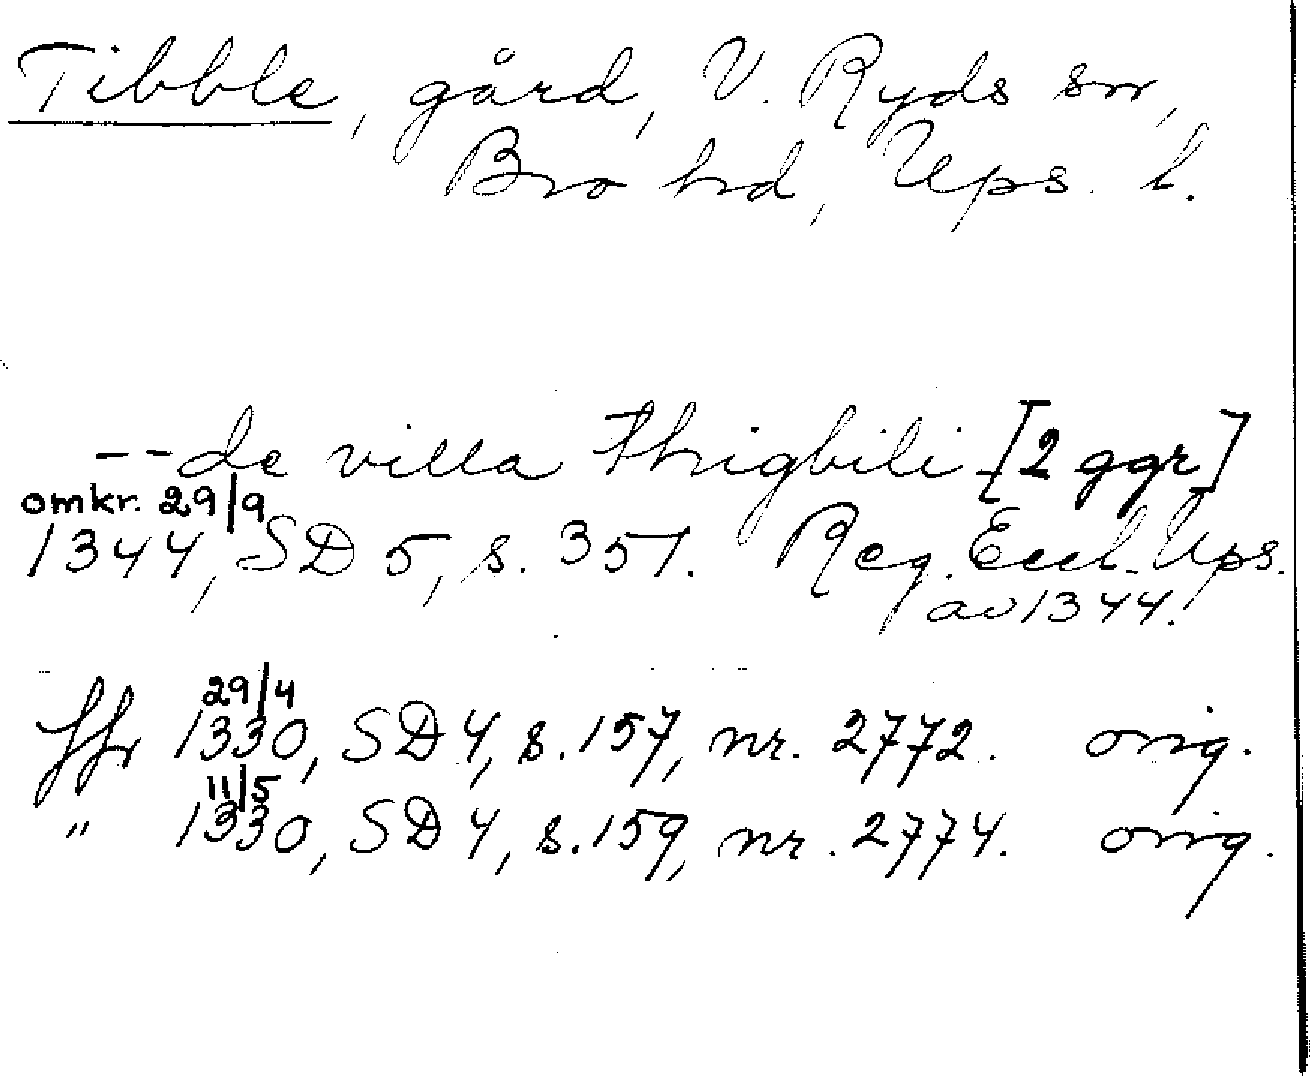 Tibble, gård, V. Ryds sn,
Bro hd, Ups. l.
-- de villa Thigbili [2 ggr]
omkr. 29/9
1344, SD 5, s. 351. Reg. Eccl. Ups.
av 1344.
29/4
ffr 1330, SD 4, s. 157, nr. 2772. orig.
11/5
" 1330, SD 4, s. 159, nr. 2774. orig.